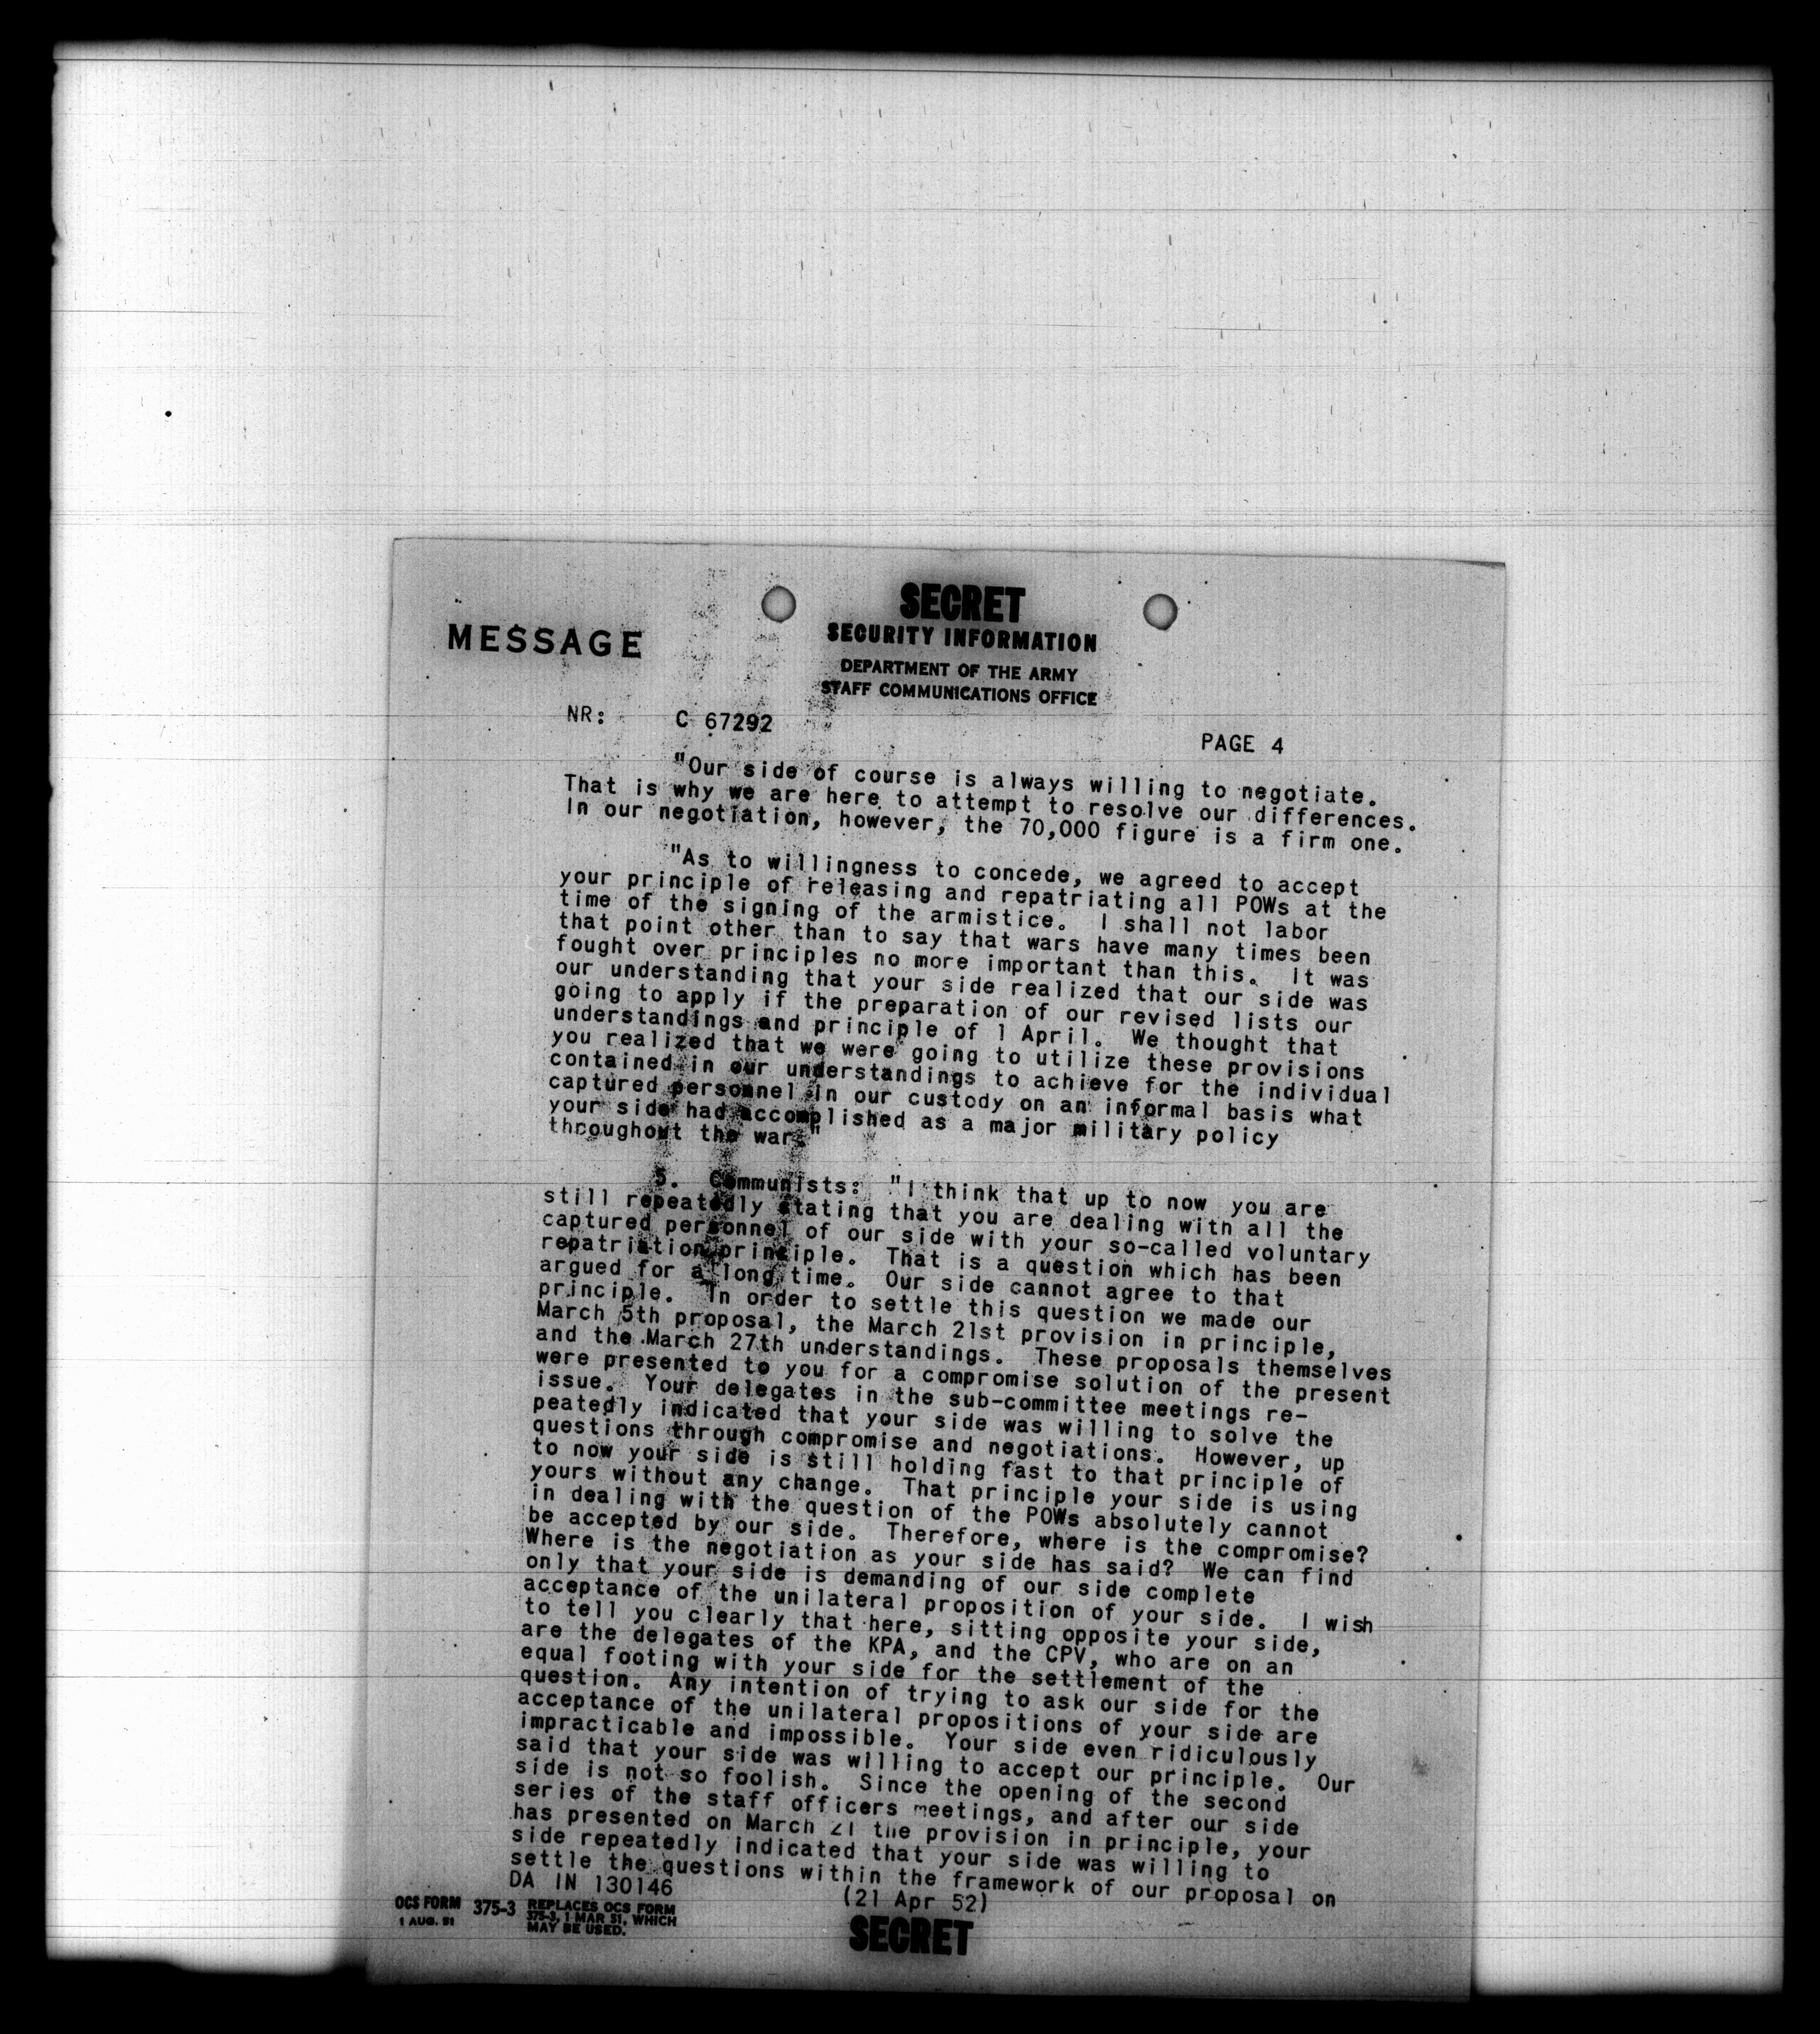 SECRET
SECURITY INFORMATION
MESSAGE
DEPARTMENT OF THE ARMY
STAFF COMMUNICATIONS OFFICE
NR: C 67292
PAGE 4
"Our side of course is always willing to negotiate.
That is why we are here to attempt to resolve our differences.
In our negotiation, however, the 70,000 figure is a firm one.
"As to willingness to concede, we agreed to accept
your principle of releasing and repatriating all POWs at the
time of the signing of the armistice. I shall not labor
that point other than to say that wars have many times been
fought over principles no more important than this. It was
our understanding that your side realized that our side was
going to apply if the preparation of our revised lists our
understandings and principle of 1 April. We thought that
you realized that we were going to utilize these provisions
contained in our understandings to achieve for the individual
captured personnel in our custody on an informal basis what
your side had accomplished as a major military policy
throughout the war."
5. Communists: "I think that up to now you are
still repeatedly stating that you are dealing with all the
captured personnel of our side with your so-called voluntary
repatriation principle. That is a question which has been
argued for a long time. Our side cannot agree to that
principle. In order to settle this question we made our
March 5th proposal, the March 21st provision in principle,
and the March 27th understandings. These proposals themselves
were presented to you for a compromise solution of the present
issue. Your delegates in the sub-committee meetings re-
peatedly indicated that your side was willing to solve the
questions through compromise and negotiations. However, up
to now your side is still holding fast to that principle of
yours without any change. That principle your side is using
in dealing with the question of the POWs absolutely cannot
be accepted by our side. Therefore, where is the compromise?
Where is the negotiation as your side has said? We can find
only that your side is demanding of our side complete
acceptance of the unilateral proposition of your side. I wish
to tell you clearly that here, sitting opposite your side,
are the delegates of the KPA, and the CPV, who are on an
equal footing with your side for the settlement of the
question. Any intention of trying to ask our side for the
acceptance of the unilateral propositions of your side are
impracticable and impossible. Your side even ridiculously
said that your side was willing to accept our principle. Our
side is not so foolish. Since the opening of the second
series of the staff officers meetings, and after our side
has presented on March 21 the provision in principle, your
side repeatedly indicated that your side was willing to
settle the questions within the framework of our proposal on
DA IN 130146 (21 Apr 52)
OCS FORM 375-3 REPLACES OCS FORM
1 AUG. 51 375-3, 1 MAR 51, WHICH
MAY BE USED.
SECRET